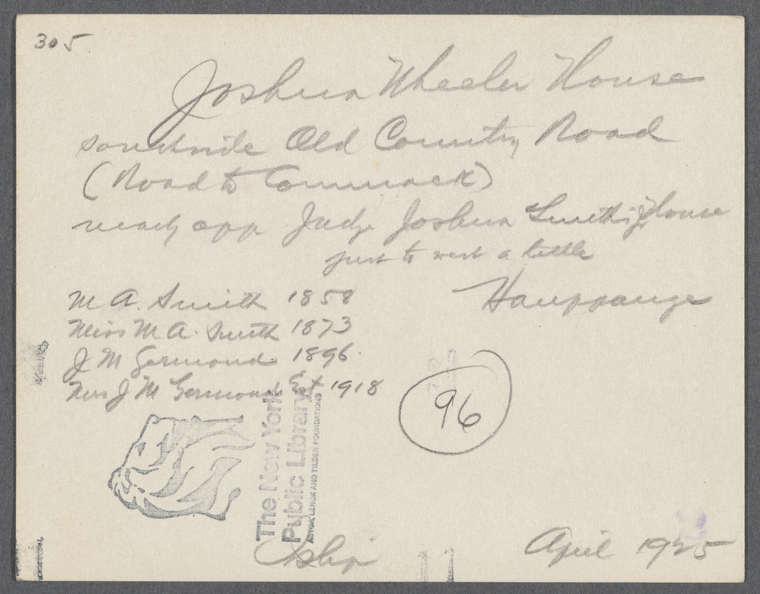 305
Joshua Wheeler House
southside Old Country Road
(Road to Commack)
nearly opp Judge Joshua Smith's House
just to west a little
Hauppauge
M A. Smith 1858
Miss M A. Smith 1873
J M Germond 1896
Mrs J M Germond Est 1918
96
The New York
Public Library
ASTOR, LENOX AND TILDEN FOUNDATIONS
Islip
April 1925